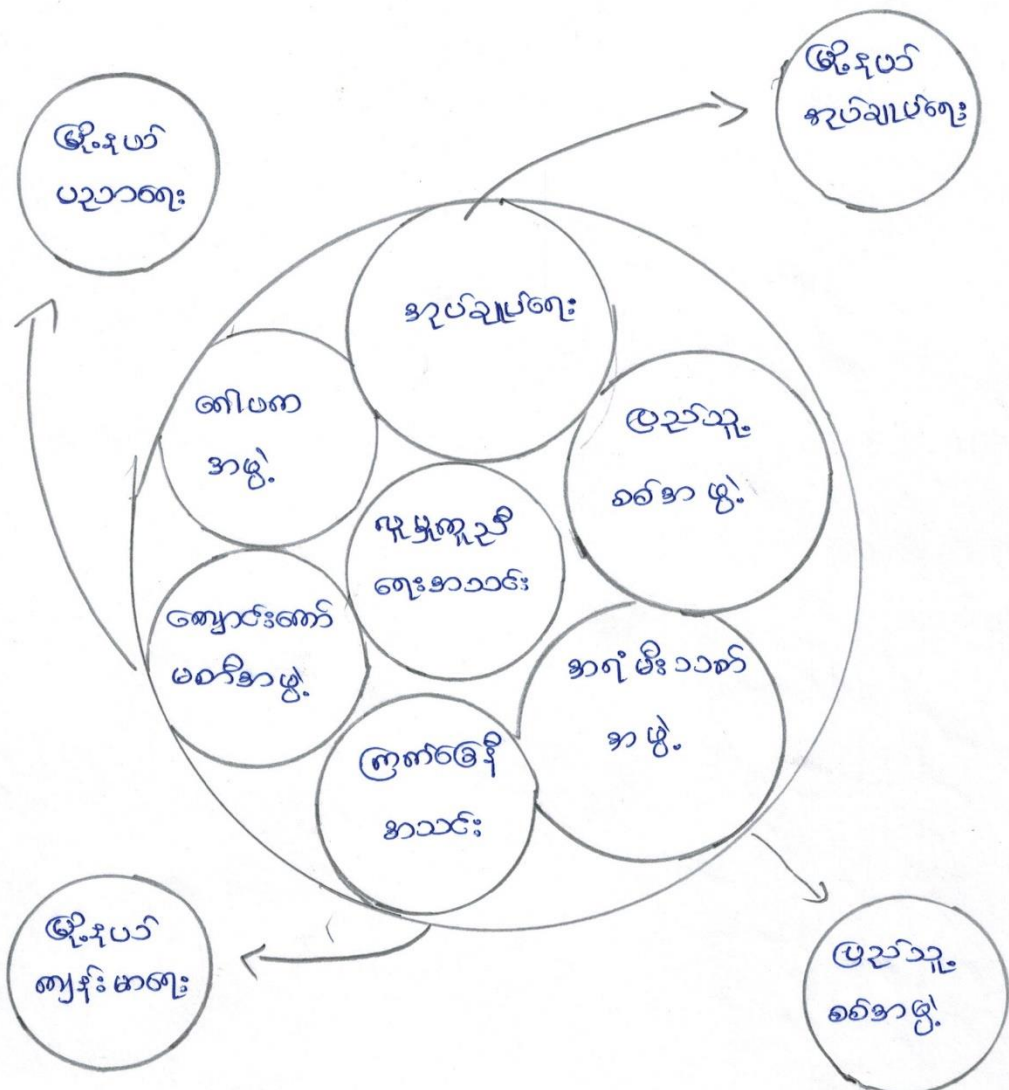 မြို့နယ်
အုပ်ချုပ်ရေး
မြို့နယ်
ပညာရေး
အုပ်ချုပ်ရေး
ဂေါပက
အဖွဲ့
ပြည်သူ့
စစ်အဖွဲ့
လူမှုကူညီ
ရေးအသင်း
ကျောင်းကော်
မတီအဖွဲ့
အရံမီးသတ်
အဖွဲ့
ကြက်ခြေနီ
အသင်း
မြို့နယ်
ကျန်းမာရေး
ပြည်သူ့
စစ်အဖွဲ့